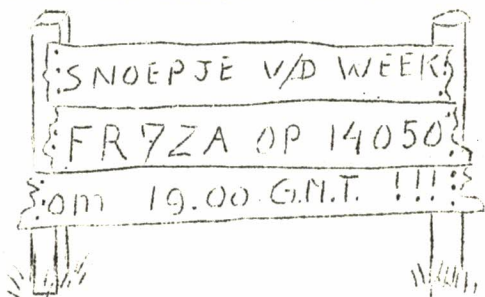 SNOEPJE V/D WEEK
FR7ZA OP 14050
om 19.00 G.M.T. !!!